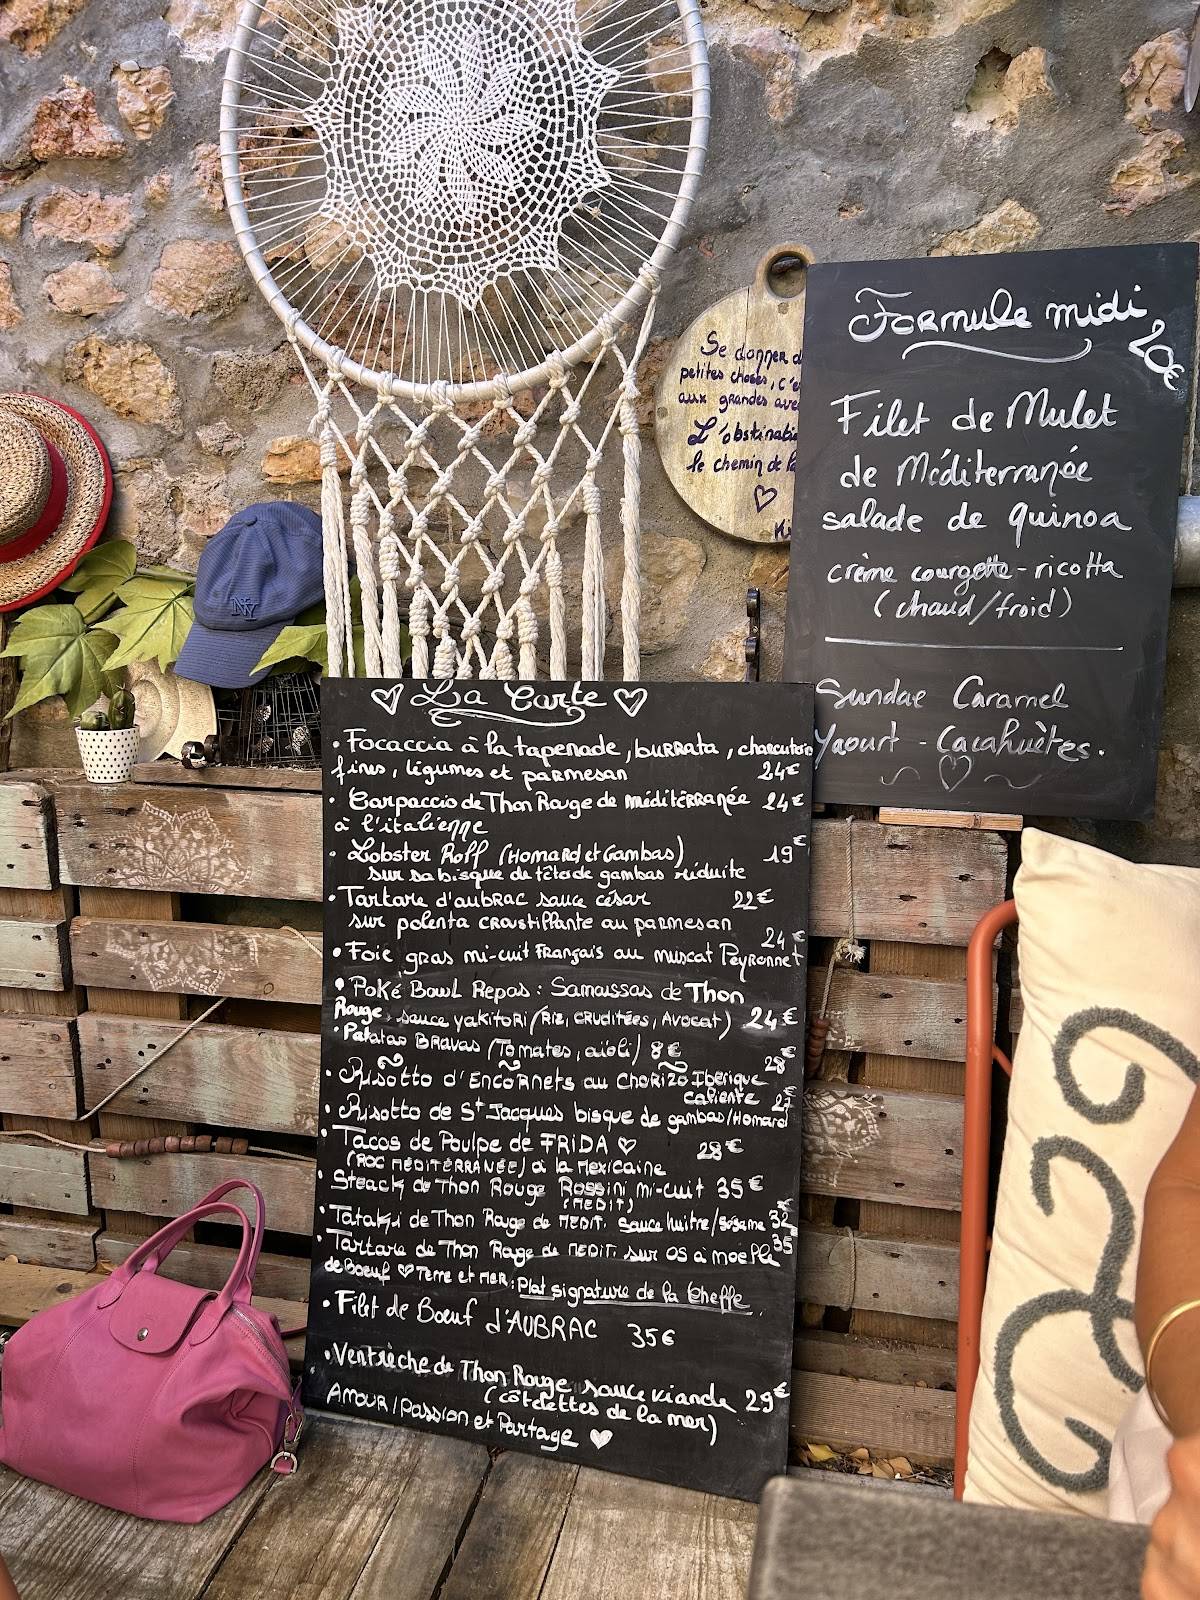 Se donner d
petites choses, c'e
aux grandes ave
L'obstinati
le chemin de la
Formule midi
20€
Filet de Mulet
de Méditerranée
salade de quinoa
crème courgette - ricotta
(chaud/froid)
Sundae Caramel
Yaourt - Cacahuètes.
La Carte
• Focaccia à la tapenade, burrata, charcuterie
fines, légumes et parmesan 24€
• Carpaccio de Thon Rouge de méditerranée 24€
à l'italienne
• Lobster Roll (Homard et Gambas) 19€
sur sa bisque de tête de gambas réduite
• Tartare d'aubrac sauce césar 22€
sur polenta croustillante au parmesan
24€
• Foie gras mi-cuit Français au muscat Peyronnet
• Poké Bowl Repas : Samoussas de Thon
Rouge, sauce yakitori (Riz, crudités, Avocat) 24€
• Patatas Bravas (Tomates, aïoli) 8€
28€
• Risotto d'Encornets au Chorizo Ibérique
caliente
• Risotto de St Jacques bisque de gambas/Homard
• Tacos de Poulpe de FRIDA ♡ 28€
(ROC MÉDITERRANÉE) à la Mexicaine
• Steack de Thon Rouge Rossini mi-cuit 35€
(MEDIT)
• Tataki de Thon Rouge de MEDIT. Sauce huitre/sésame 32€
• Tartare de Thon Rouge de MEDIT. sur OS à moelle 35
de Boeuf ♡ Terre et Mer : Plat signature de la Cheffe.
• Filet de Boeuf d'AUBRAC 35€
• Ventrèche de Thon Rouge sauce viande 29€
(côtelettes de la mer)
Amour / Passion et Partage ♡
NY